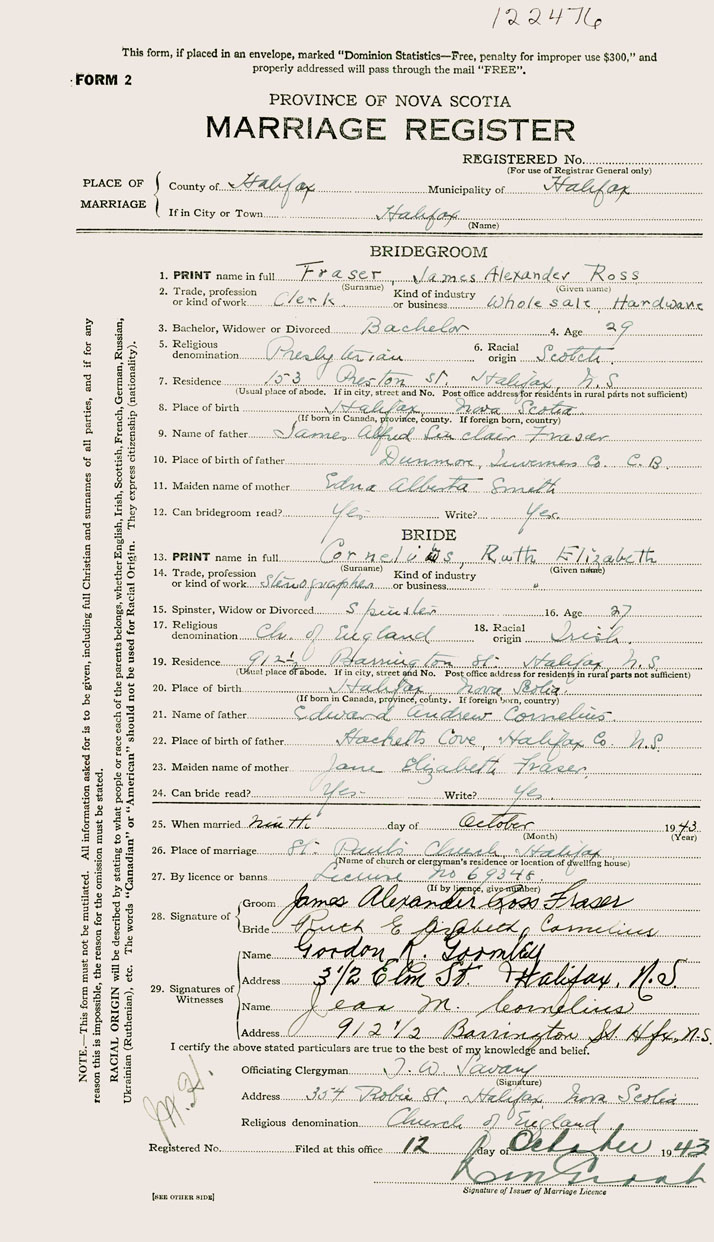 122476
This form, if placed in an envelope, marked "Dominion Statistics—Free, penalty for improper use $300," and
properly addressed will pass through the mail "FREE".
FORM 2
PROVINCE OF NOVA SCOTIA
MARRIAGE REGISTER
REGISTERED No.
(For use of Registrar General only)
PLACE OF MARRIAGE
County of Halifax Municipality of Halifax
If in City or Town Halifax
(Name)
BRIDEGROOM
1. PRINT name in full Fraser, James Alexander Ross
(Surname) (Given name)
2. Trade, profession or kind of work Clerk Kind of industry or business Wholesale Hardware
3. Bachelor, Widower or Divorced Bachelor 4. Age 29
5. Religious denomination Presbyterian 6. Racial origin Scotch
7. Residence 153 Preston St. Halifax N.S.
(Usual place of abode. If in city, street and No. Post office address for residents in rural parts not sufficient)
8. Place of birth Halifax, Nova Scotia
(If born in Canada, province, county. If foreign born, country)
9. Name of father James Alfred Sinclair Fraser
10. Place of birth of father Dunmore, Inverness Co. C.B.
11. Maiden name of mother Edna Alberta Smith
12. Can bridegroom read? Yes Write? Yes.
BRIDE
13. PRINT name in full Cornelius, Ruth Elizabeth
(Surname) (Given name)
14. Trade, profession or kind of work Stenographer Kind of industry or business "
15. Spinster, Widow or Divorced Spinster 16. Age 27
17. Religious denomination Ch. of England 18. Racial origin Irish.
19. Residence 912½ Barrington St. Halifax, N.S.
(Usual place of abode. If in city, street and No. Post office address for residents in rural parts not sufficient)
20. Place of birth Halifax Nova Scotia.
(If born in Canada, province, county. If foreign born, country)
21. Name of father Edward Andrew Cornelius.
22. Place of birth of father Hacketts Cove, Halifax Co. N.S.
23. Maiden name of mother Jane Elizabeth Fraser.
24. Can bride read? Yes Write? Yes.
25. When married ninth day of October 1943
(Month) (Year)
26. Place of marriage St. Paul's Church, Halifax
(Name of church or clergyman's residence or location of dwelling house)
27. By licence or banns License no 69348.
(If by licence, give number)
28. Signature of
Groom James Alexander Ross Fraser
Bride Ruth Elizabeth Cornelius
29. Signatures of Witnesses
Name Gordon R.
Address 3 1/2 Elm St. Halifax, N.S.
Name Jean M. Cornelius
Address 912 1/2 Barrington St Hfx, N.S.
I certify the above stated particulars are true to the best of my knowledge and belief.
Officiating Clergyman T. W. Savary
(Signature)
Address 354 Robie St. Halifax, Nova Scotia
Religious denomination Church of England
M.H.
Registered No. Filed at this office 12 day of October 1943
Signature of Issuer of Marriage Licence
[SEE OTHER SIDE]
NOTE.—This form must not be mutilated. All information asked for is to be given, including full Christian and surnames of all parties, and if for any
reason this is impossible, the reason for the omission must be stated.
RACIAL ORIGIN will be described by stating to what people or race each of the parents belongs, whether English, Irish, Scottish, French, German, Russian,
Ukrainian (Ruthenian), etc. The words "Canadian" or "American" should not be used for Racial Origin. They express citizenship (nationality).